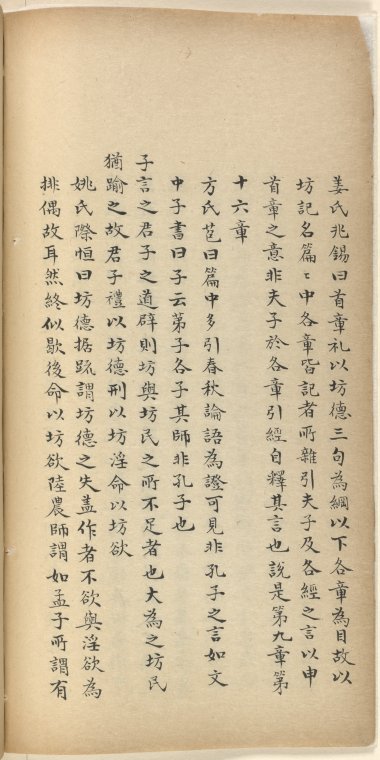 姜氏兆錫曰首章礼以坊德三句為綱以下各章為目故以
坊記名篇〻中各章皆記者所雜引夫子及各經之言以申
首章之意非夫子於各章引經自釋其言也說是第九章第
十六章
方氏苞曰篇中多引春秋論語為證可見非孔子之言如文
中子書曰子云第子各子其師非孔子也
子言之君子之道辟則坊與坊民之所不足者也大為之坊民
猶踰之故君子禮以坊德刑以坊淫命以坊欲
姚氏際恒曰坊德据䟽謂坊德之失盖作者不欲與淫欲為
排偶故耳然終似歇後命以坊欲陸農師謂如孟子所謂有